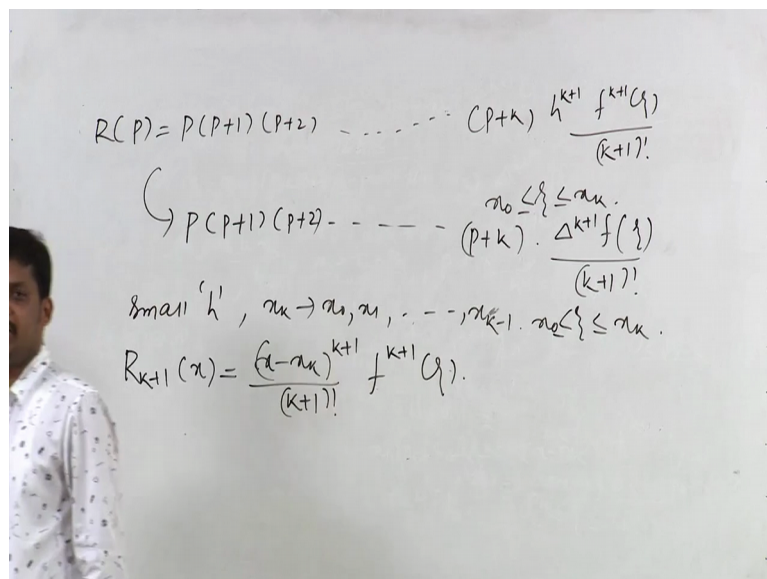 R(P) = P(P+1)(P+2) ........ (P+k) h^{k+1} f^{k+1}(ξ) / (k+1)!
x₀ ≤ ξ ≤ x_k.
P(P+1)(P+2) - - - - - - (P+k) . Δ^{k+1} f(ξ) / (k+1)!
small 'h', x_k → x₀, x₁, . - - -, x_{k-1}. x₀ ≤ ξ ≤ x_k.
R_{k+1}(x) = (x-x_k)^{k+1} / (k+1)! f^{k+1}(ξ).